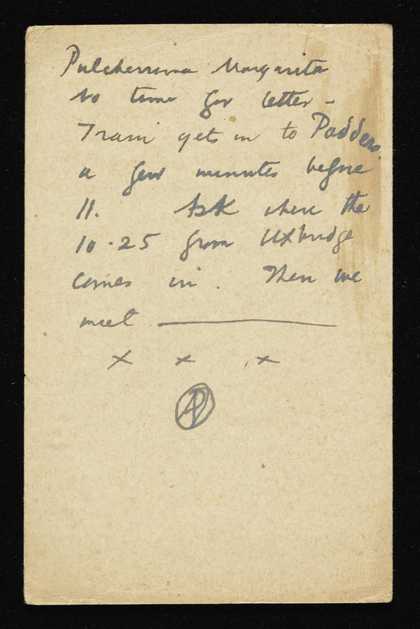 Pulcherrima Margarita
No time for letter –
Train gets in to Paddn.
a few minutes before
11. Ask where the
10.25 from Uxbridge
comes in. Then we
meet ———
x x x